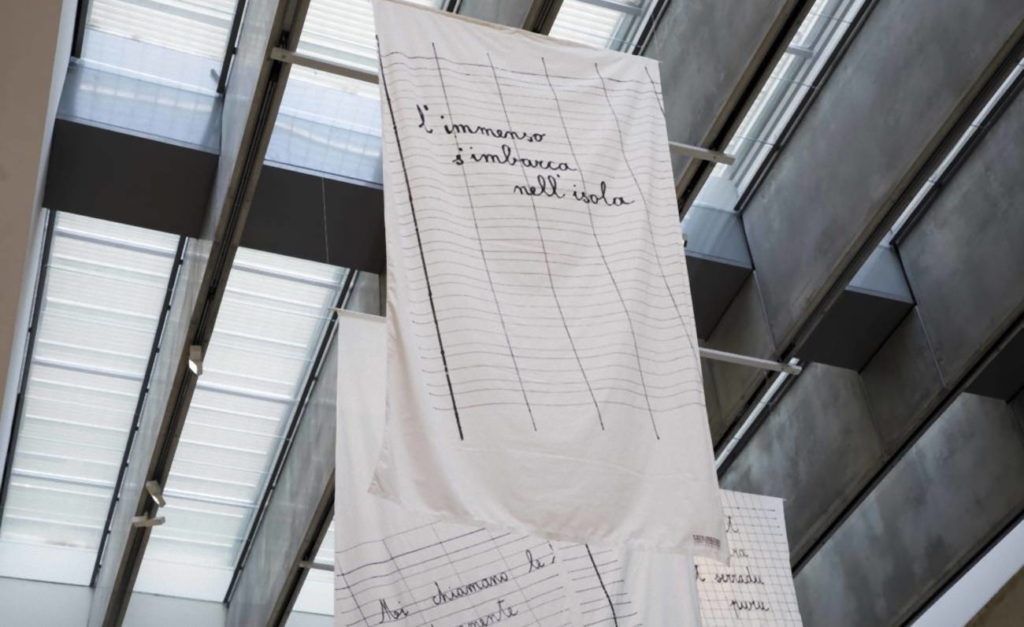 l'immenso
s'imbarca
nell'isola
Noi chiamano le
mente
serradu
puru